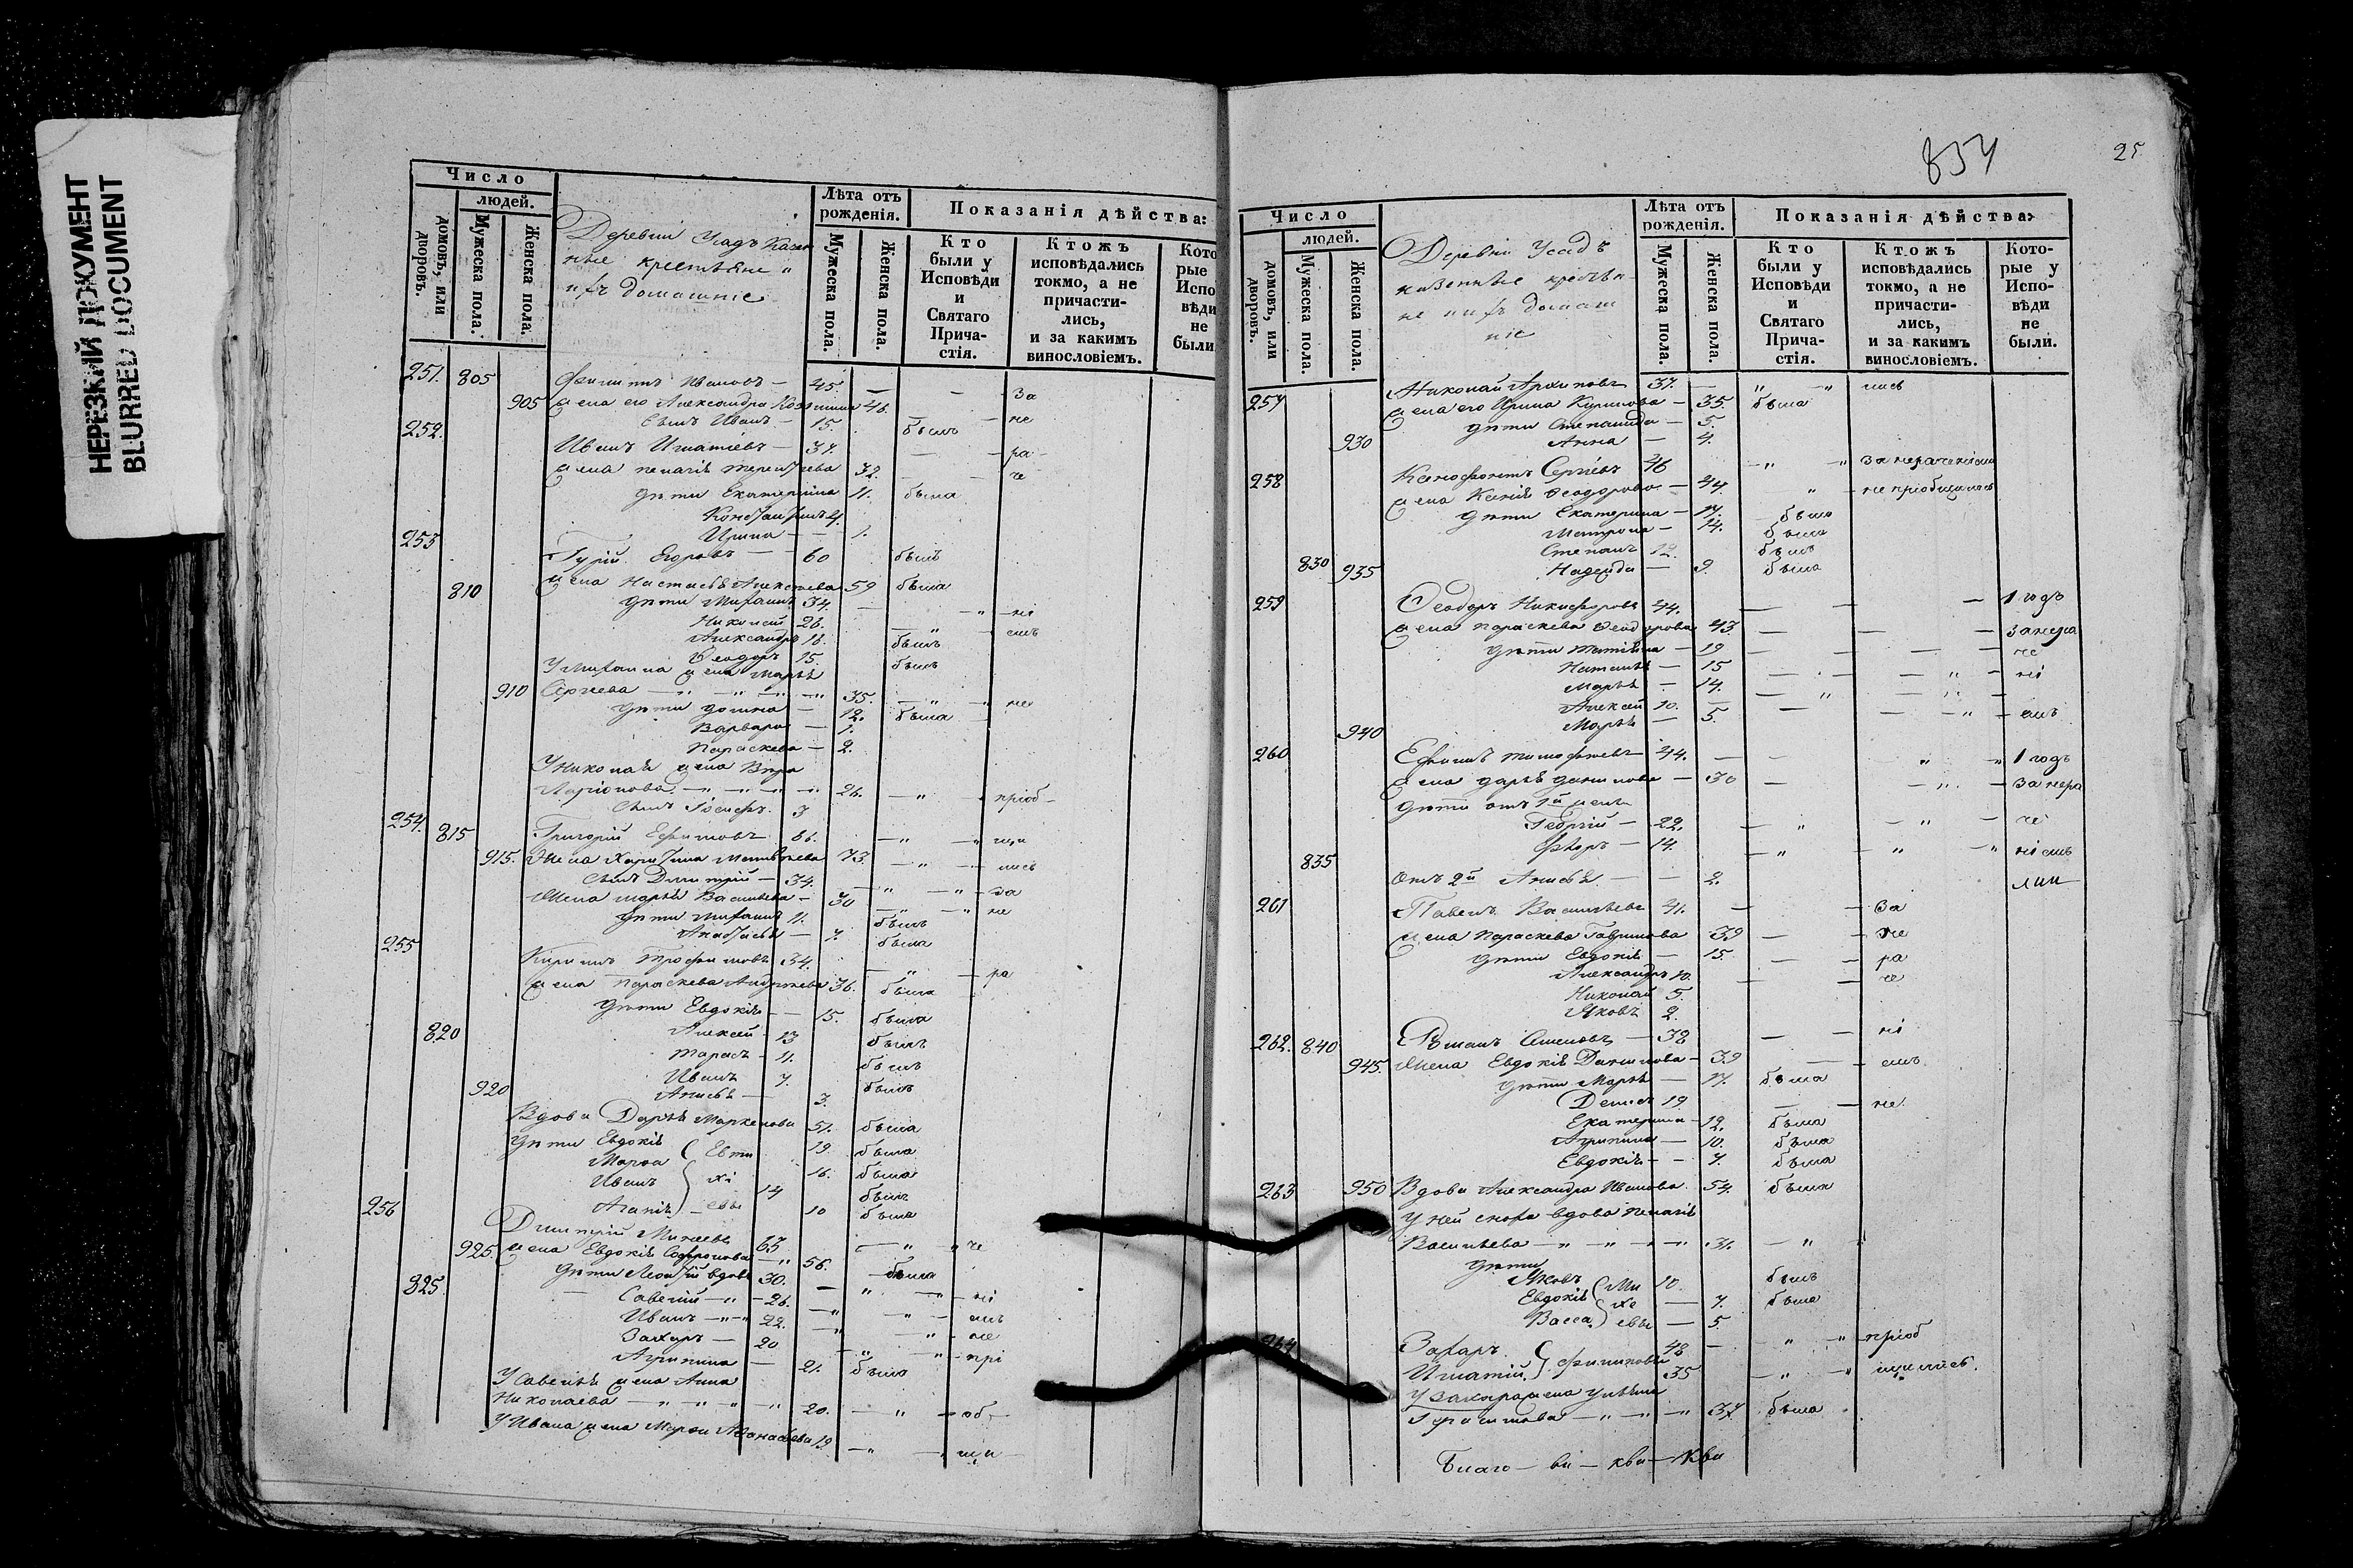 НЕРЕЗКИЙ ДОКУМЕНТ
BLURRED DOCUMENT
Число
людей.
домовъ, или дворовъ.
Мужеска пола.
Женска пола.
Деревни Усадъ Казен
ные крестьяне "
ихъ домашніе
Лѣта отъ рожденія.
Мужеска пола.
Женска пола.
Показанія дѣйства:
Кто были у Исповѣди и Святаго Прича-стія.
Ктожъ исповѣдались токмо, а не причасти-лись, и за какимъ винословіемъ.
Кото рые Испо вѣди не были
251. 805 Филиппъ Ивановъ — 45. — — За
905 Жена его Александра 46.
Сынъ Иванъ — 15. былъ — не
252. Иванъ Игнатьевъ — 37. — — ра
Жена Пелагія Терентьева 32. — — че
Дѣти Екатерина 11. была
Константинъ 4.
Ирина — — 1.
253 Гурій Егоровъ — — 60 былъ
Жена Настасья Алексѣева 59 была
810 Дѣти Михаилъ 34. — — " — ні
Николай 26. — " — емъ
Александръ 18. былъ
Ѳеодоръ 15. былъ
У Михаила жена Марья
910 Сергѣева — " — " — " — " 35. — " — " не
Дѣти Домна — 12. была
Варвара — 1.
Параскева — 2.
У Николая жена Вѣра
Ларіонова — " — " — " — " 26. — " — пріоб —
Сынъ Іосифъ 3
254. 815 Григорій Ефимовъ 66. — " — " щи
915. Жена Харитина Матвѣева 73. — " — лись
Сынъ Димитрій — 34. — " — " — за
Жена Марья Васильева — 30 — " — " не
Дѣти Михаилъ 11. былъ
Анастасья — 7. была
255 Кириллъ Трофимовъ 34. — " — ра
Жена Параскева Андреева 36. была
Дѣти Евдокія — — 15. была
820 Алексѣй — 13 былъ
Тарасъ — 11. былъ
Иванъ 7. былъ
920 Анисья — 3.
Вдова Дарья Маркелова 51. была
Дѣти Евдокія 19. была
Марѳа 16. была
Иванъ 14 былъ
Агапія 10 была
256 Димитрій Михеевъ 63 — " — " че
925. Жена Евдокія Софронова — " 56. была
Дѣти вдовъ 30. — " — " — ні
825. Савелій — " — 26. — " — " — емъ
Иванъ — " — " 22. — " — " — не
Захаръ — 20 — " — " — прі
Агрипина — 21. была
У Савелья жена Анна
Николаева — " — " — " — " 20. — " — об —
У Ивана жена Марѳа Аѳанасьева 19 — " — " щи —
834
25
Число
людей.
домовъ, или дворовъ.
Мужеска пола.
Женска пола.
Деревни Усадъ
казенные крестья
не и ихъ домаш
ніе
Лѣта отъ рожденія.
Мужеска пола.
Женска пола.
Показанія дѣйства:
Кто были у Исповѣди и Святаго Прича-стія.
Ктожъ исповѣдались токмо, а не причасти-лись, и за какимъ винословіемъ.
Кото-рые у Испо-вѣди не были.
257 Николай Архиповъ 37. — " — " лись
Жена его Ирина — 35. была
Дѣти Степанида — 5.
930 Анна — 4.
258 Ксенофонтъ Сергѣевъ 46 — " — " за нераченіемъ
Жена Ксенія Ѳеодорова — 44. " — не пріобщились
Дѣти Екатерина — 17. была
Матрона — 14. была
830 Степанъ 12. былъ
935 Надежда — 9. была
259 Ѳеодоръ Никифоровъ 44. — — — 1 годъ
Жена Параскева Ѳеодорова 43. — — — За нера
Дѣти Татіяна — 19 — — — че
Наталья — 15 — — " — ні
Марья — 14. — " — " —
Алексѣй 10. — — " — емъ
940 Марья — 5.
260 Ефимъ Тимофѣевъ 44. — — " " 1 годъ
Жена Дарья Данилова — 30 — — " — За нера
Дѣти отъ 1й жены
Георгій — 22. — " — " — че
835 Ѳедоръ — 14. — " — " — " ніемъ
Отъ 2й Анисья — — 2.
261 Павелъ Васильевъ 41. — — За
Жена Параскева Гаврилова 39 — — не
Дѣти Евдокія — 15. — — ра
Александръ 10. — — че
Николай 5.
Яковъ 2.
262. 840 Романъ Семеновъ — 38 — — ні
945. Жена Евдокія Данилова — 39 — — емъ
Дѣти Марья — 17. была
Денисъ 19 — — не
Екатерина — 12. была
Агрипина — 10. была
Евдокія — — 7. была
263 950 Вдова Александра Иванова. 54. была
У ней сноха вдова Пелагія
Васильева — " — " — " — " 31. — "
Дѣти
Яковъ 10. былъ
Евдокія 7. была
Васса 5.
264 Захаръ 48 — " — " — пріоб
Игнатій Филиповы 35 — " — " щились.
У Захара жена Ульяна
Герасимова — " — " — " 37 была
Благо — ви — кви — Кви